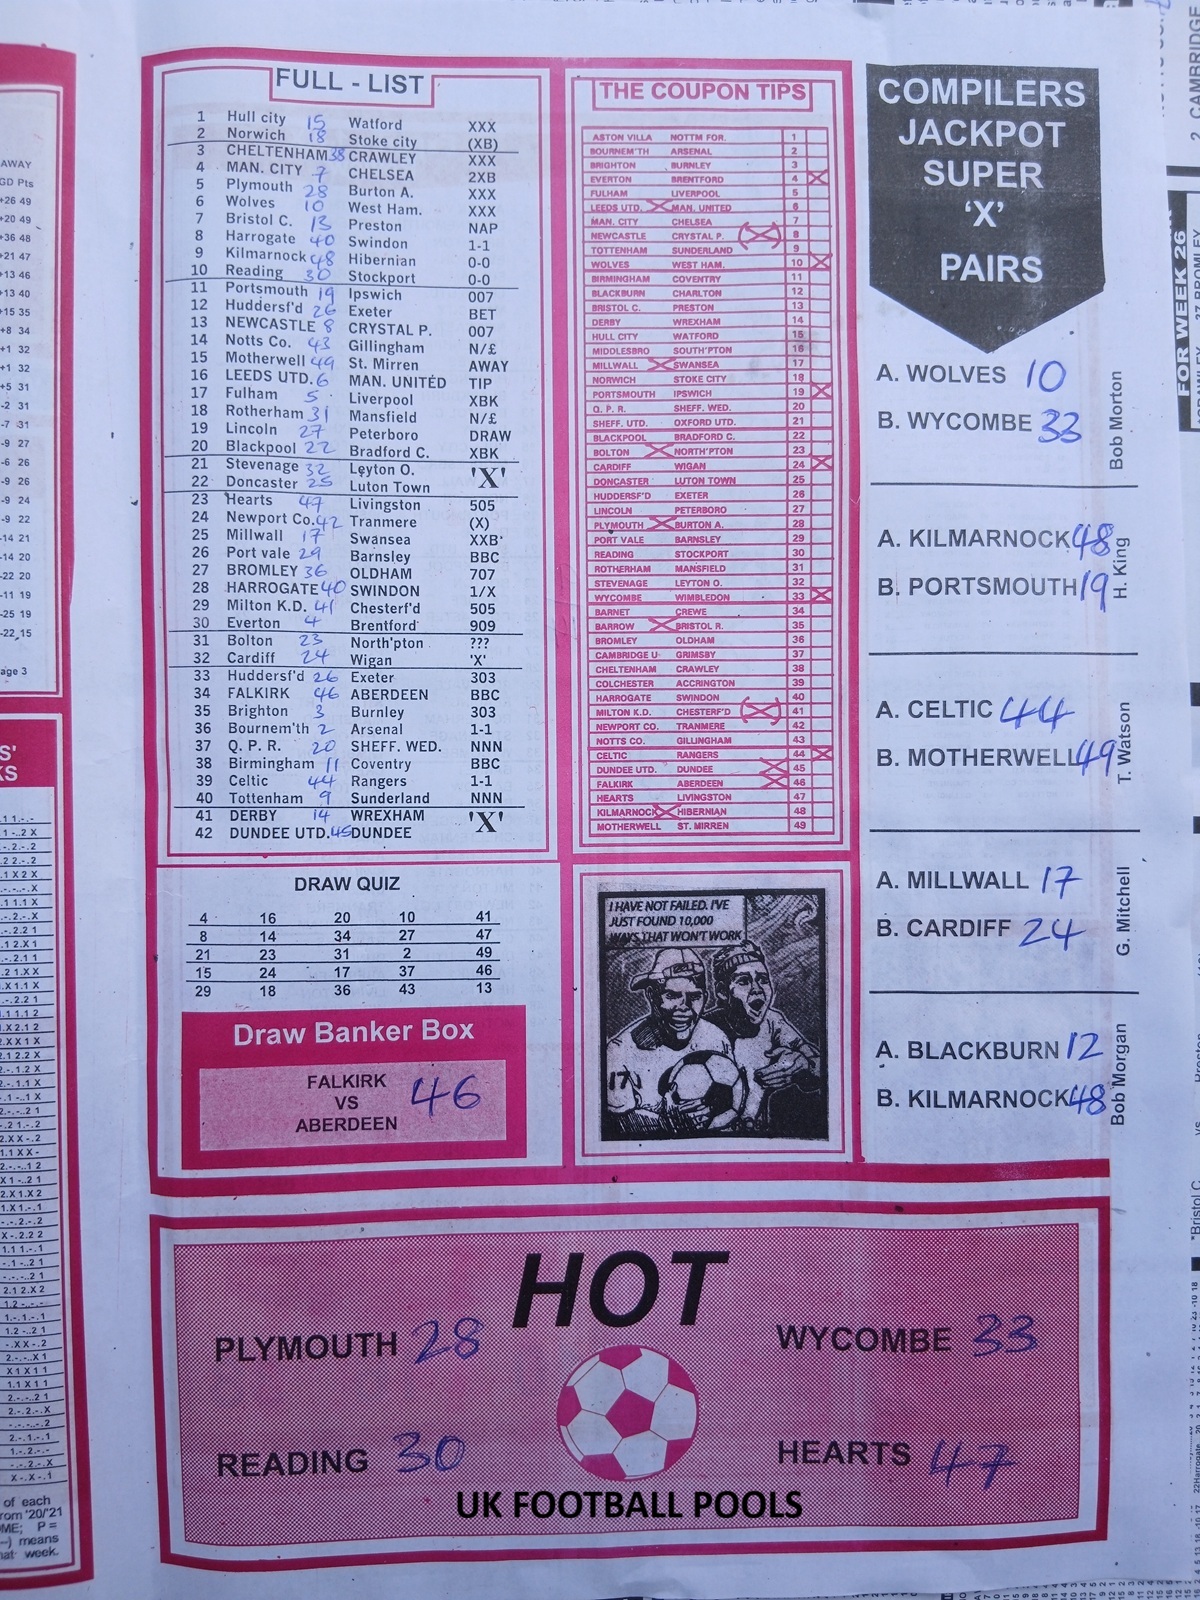 AWAY
GD Pts
+26 49
+20 49
+36 48
+21 47
+13 46
+13 40
+15 35
+8 34
+1 32
+1 32
+5 31
-2 31
-7 31
-9 27
-6 26
-9 26
-9 24
-9 22
-14 21
-14 20
-22 20
-11 19
-25 19
-22 15
FULL - LIST
1 Hull city 15 Watford XXX
2 Norwich 18 Stoke city (XB)
3 CHELTENHAM 38 CRAWLEY XXX
4 MAN. CITY 7 CHELSEA 2XB
5 Plymouth 28 Burton A. XXX
6 Wolves 10 West Ham. XXX
7 Bristol C. 13 Preston NAP
8 Harrogate 40 Swindon 1-1
9 Kilmarnock 48 Hibernian 0-0
10 Reading 30 Stockport 0-0
11 Portsmouth 19 Ipswich 007
12 Huddersf'd 26 Exeter BET
13 NEWCASTLE 8 CRYSTAL P. 007
14 Notts Co. 43 Gillingham N/£
15 Motherwell 49 St. Mirren AWAY
16 LEEDS UTD. 6 MAN. UNITED TIP
17 Fulham 5 Liverpool XBK
18 Rotherham 31 Mansfield N/£
19 Lincoln 27 Peterboro DRAW
20 Blackpool 22 Bradford C. XBK
21 Stevenage 32 Leyton O. 'X'
22 Doncaster 25 Luton Town
23 Hearts 47 Livingston 505
24 Newport Co. 42 Tranmere (X)
25 Millwall 17 Swansea XXB
26 Port vale 29 Barnsley BBC
27 BROMLEY 36 OLDHAM 707
28 HARROGATE 40 SWINDON 1/X
29 Milton K.D. 41 Chesterf'd 505
30 Everton 4 Brentford 909
31 Bolton 23 North'pton ???
32 Cardiff 24 Wigan 'X'
33 Huddersf'd 26 Exeter 303
34 FALKIRK 46 ABERDEEN BBC
35 Brighton 3 Burnley 303
36 Bournem'th 2 Arsenal 1-1
37 Q. P. R. 20 SHEFF. WED. NNN
38 Birmingham 11 Coventry BBC
39 Celtic 44 Rangers 1-1
40 Tottenham 9 Sunderland NNN
41 DERBY 14 WREXHAM 'X'
42 DUNDEE UTD. 45 DUNDEE
THE COUPON TIPS
ASTON VILLA NOTTM FOR. 1
BOURNEM'TH ARSENAL 2
BRIGHTON BURNLEY 3
EVERTON BRENTFORD 4 X
FULHAM LIVERPOOL 5
LEEDS UTD. X MAN. UNITED 6
MAN. CITY CHELSEA 7
NEWCASTLE CRYSTAL P. (X) 8
TOTTENHAM SUNDERLAND 9
WOLVES WEST HAM. 10 X
BIRMINGHAM COVENTRY 11
BLACKBURN CHARLTON 12
BRISTOL C. PRESTON 13
DERBY WREXHAM 14
HULL CITY WATFORD 15
MIDDLESBRO SOUTH'PTON 16
MILLWALL X SWANSEA 17
NORWICH STOKE CITY 18
PORTSMOUTH IPSWICH 19 X
Q. P. R. SHEFF. WED. 20
SHEFF. UTD. OXFORD UTD. 21
BLACKPOOL BRADFORD C. 22
BOLTON X NORTH'PTON 23
CARDIFF WIGAN 24 X
DONCASTER LUTON TOWN 25
HUDDERSF'D EXETER 26
LINCOLN PETERBORO 27
PLYMOUTH X BURTON A. 28
PORT VALE BARNSLEY 29
READING STOCKPORT 30
ROTHERHAM MANSFIELD 31
STEVENAGE LEYTON O. 32
WYCOMBE WIMBLEDON 33 X
BARNET CREWE 34
BARROW X BRISTOL R. 35
BROMLEY OLDHAM 36
CAMBRIDGE U GRIMSBY 37
CHELTENHAM CRAWLEY 38
COLCHESTER ACCRINGTON 39
HARROGATE SWINDON 40
MILTON K.D. CHESTERF'D (X) 41
NEWPORT CO. TRANMERE 42
NOTTS CO. GILLINGHAM 43
CELTIC RANGERS 44 X
DUNDEE UTD. DUNDEE X 45
FALKIRK ABERDEEN X 46
HEARTS LIVINGSTON 47
KILMARNOCK X HIBERNIAN 48
MOTHERWELL ST. MIRREN 49
COMPILERS
JACKPOT
SUPER
'X'
PAIRS
A. WOLVES 10
B. WYCOMBE 33
Bob Morton
A. KILMARNOCK 48
B. PORTSMOUTH 19
H. King
A. CELTIC 44
B. MOTHERWELL 49
T. Watson
A. MILLWALL 17
B. CARDIFF 24
G. Mitchell
A. BLACKBURN 12
B. KILMARNOCK 48
Bob Morgan
DRAW QUIZ
4 16 20 10 41
8 14 34 27 47
21 23 31 2 49
15 24 17 37 46
29 18 36 43 13
Draw Banker Box
FALKIRK
VS
ABERDEEN
46
I HAVE NOT FAILED. I'VE
JUST FOUND 10,000
WAYS THAT WON'T WORK
17
HOT
PLYMOUTH 28
WYCOMBE 33
READING 30
HEARTS 47
UK FOOTBALL POOLS
FOR WEEK 26
2 CAMBRIDGE